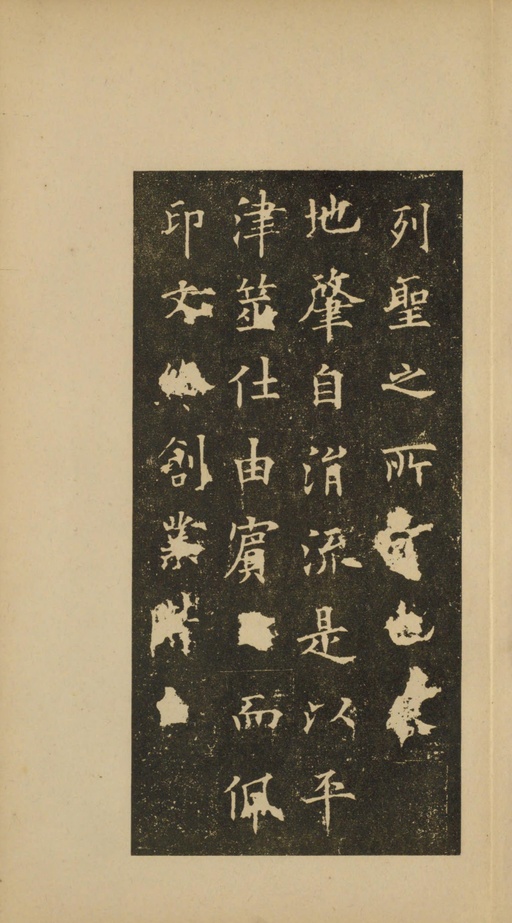 列聖之所
地肇自涓流是以平
津筮仕由賓而佩
印文創業